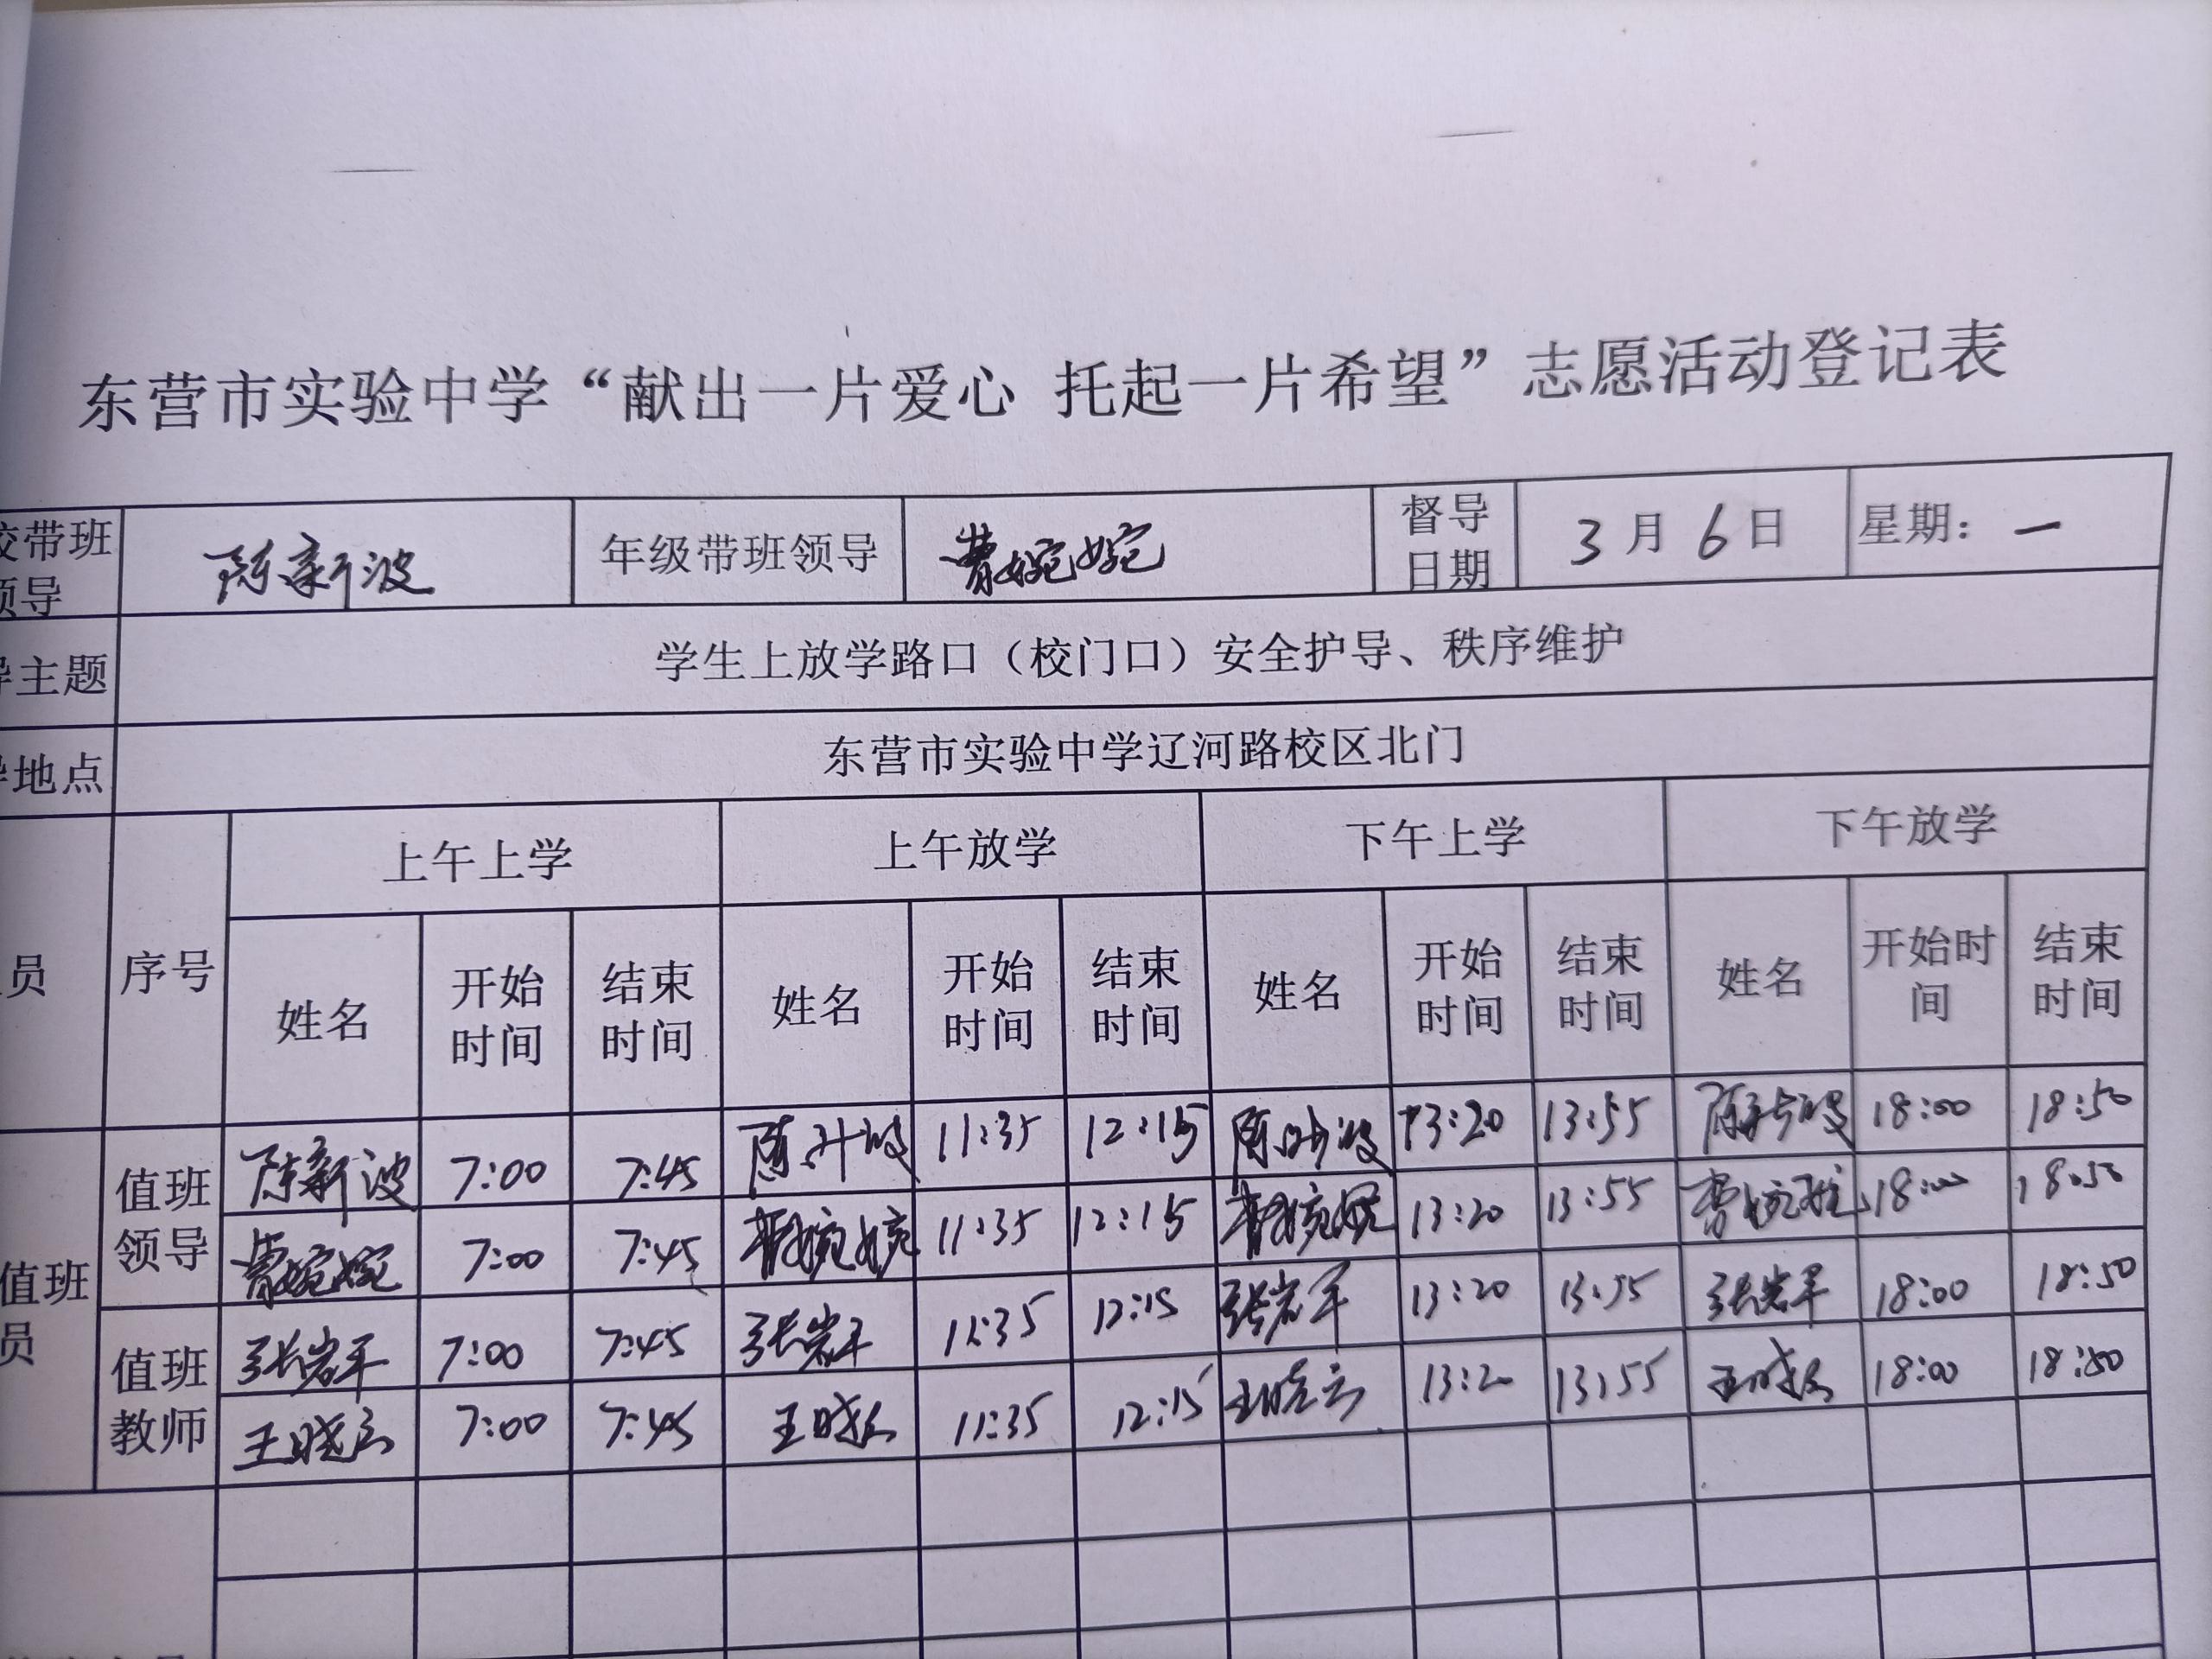 东营市实验中学“献出一片爱心 托起一片希望”志愿活动登记表
校带班领导 陈新波 年级带班领导 曹婉婉 督导日期 3月6日 星期：一
导主题 学生上放学路口（校门口）安全护导、秩序维护
导地点 东营市实验中学辽河路校区北门
员 序号 上午上学 上午放学 下午上学 下午放学
姓名 开始时间 结束时间 姓名 开始时间 结束时间 姓名 开始时间 结束时间 姓名 开始时间 结束时间
值班员 值班领导 陈新波 7:00 7:45 陈新波 11:35 12:15 陈新波 13:20 13:55 陈新波 18:00 18:50
曹婉婉 7:00 7:45 曹婉婉 11:35 12:15 曹婉婉 13:20 13:55 曹婉婉 18:00 18:50
值班教师 张岩军 7:00 7:45 张岩军 11:35 12:15 张岩军 13:20 13:55 张岩军 18:00 18:50
王晓云 7:00 7:45 王晓云 11:35 12:15 王晓云 13:20 13:55 王晓云 18:00 18:50